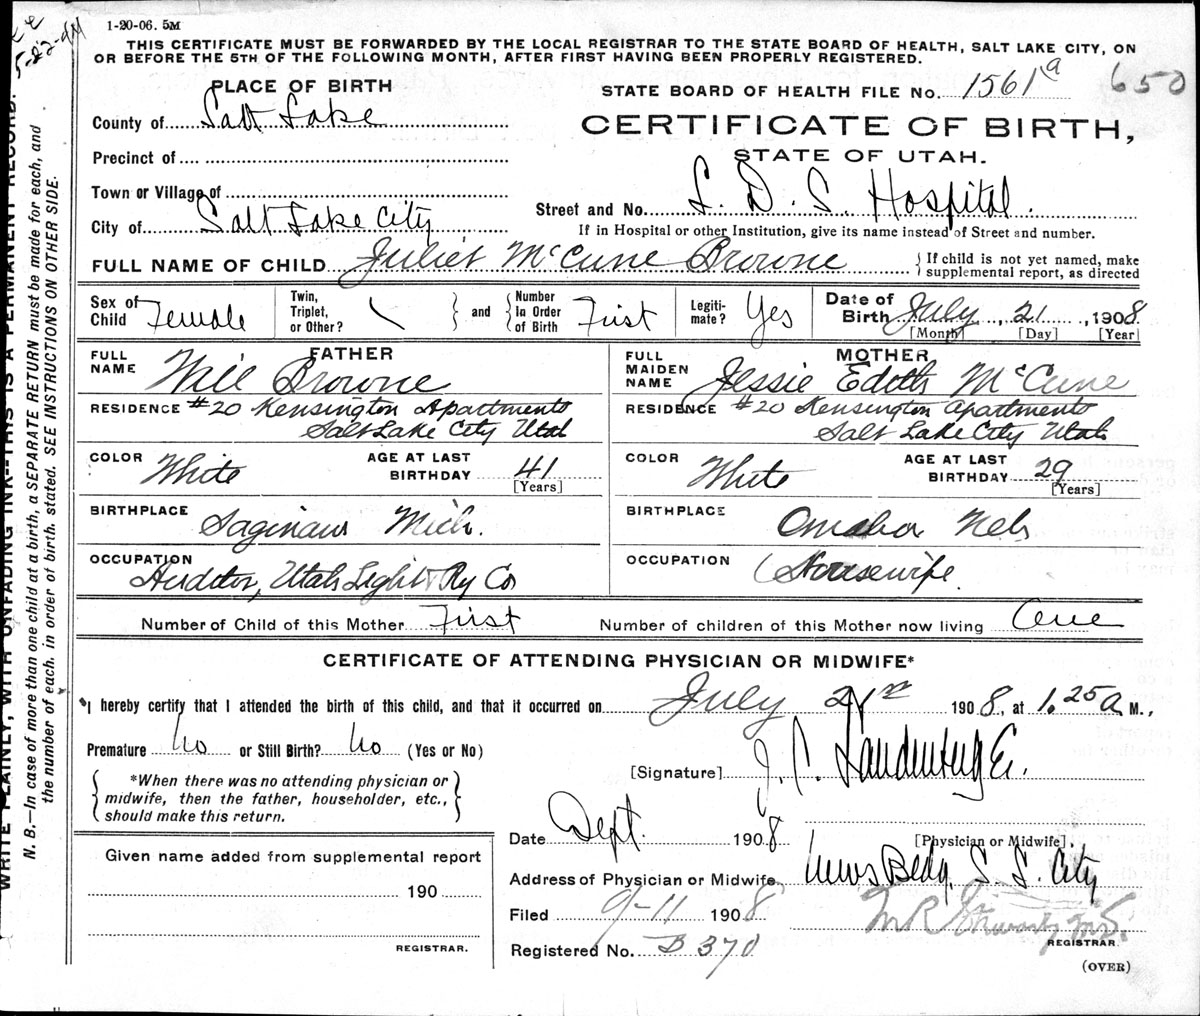 1-20-06. 5M
THIS CERTIFICATE MUST BE FORWARDED BY THE LOCAL REGISTRAR TO THE STATE BOARD OF HEALTH, SALT LAKE CITY, ON
OR BEFORE THE 5TH OF THE FOLLOWING MONTH, AFTER FIRST HAVING BEEN PROPERLY REGISTERED.
PLACE OF BIRTH
STATE BOARD OF HEALTH FILE No. 1561 a 650
County of Salt Lake
CERTIFICATE OF BIRTH,
Precinct of
STATE OF UTAH.
Town or Village of
Street and No. L. D. S. Hospital.
City of Salt Lake City
If in Hospital or other Institution, give its name instead of Street and number.
FULL NAME OF CHILD Juliet McCune Browne
If child is not yet named, make
supplemental report, as directed
Sex of
Child Female
Twin,
Triplet,
or Other?
and
Number
In Order
of Birth First
Legiti-
mate? Yes
Date of
Birth July, 21, 1908.
[Month] [Day] [Year]
FATHER
FULL
NAME Will Browne
RESIDENCE #20 Kensington Apartments
Salt Lake City Utah
COLOR White
AGE AT LAST
BIRTHDAY 41
[Years]
BIRTHPLACE Saginaw Mich.
OCCUPATION
Auditor, Utah Light & Ry Co
MOTHER
FULL
MAIDEN
NAME Jessie Edith McCune
RESIDENCE #20 Kensington Apartments
Salt Lake City Utah
COLOR White
AGE AT LAST
BIRTHDAY 29
[Years]
BIRTHPLACE Omaha Neb
OCCUPATION Housewife.
Number of Child of this Mother First
Number of children of this Mother now living One
CERTIFICATE OF ATTENDING PHYSICIAN OR MIDWIFE*
*I hereby certify that I attended the birth of this child, and that it occurred on July 21st 1908, at 1.25 a M.,
Premature No or Still Birth? No (Yes or No)
*When there was no attending physician or
midwife, then the father, householder, etc.,
should make this return.
[Signature] J. C. Landenberger.
Date Sept. 1908
[Physician or Midwife]
Given name added from supplemental report
190
REGISTRAR.
Address of Physician or Midwife News Bldg. S. L. City
Filed 9-11 1908
Registered No. B 370
REGISTRAR.
(OVER)
WRITE PLAINLY, WITH UNFADING INK—THIS IS A PERMANENT RECORD.
N. B.—In case of more than one child at a birth, a SEPARATE RETURN must be made for each, and
the number of each, in order of birth, stated. SEE INSTRUCTIONS ON OTHER SIDE.